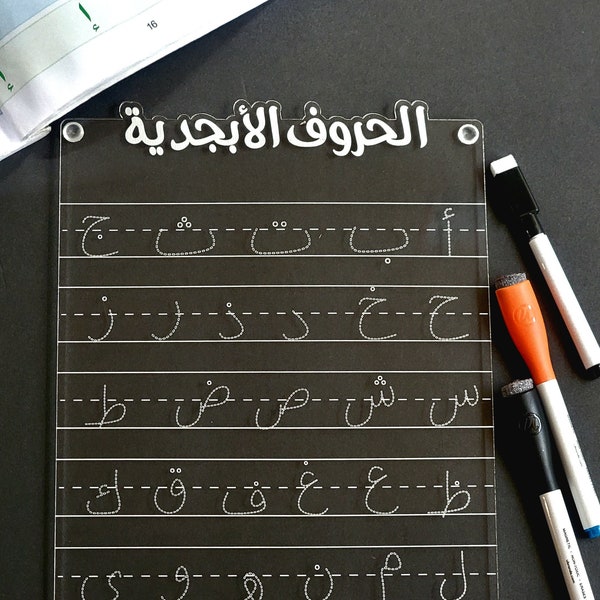 إ
16
إ
الحروف الأبجدية
أ ب ت ث ج
ح خ د ذ ر ز
س ش ص ض ط
ظ ع غ ف ق ك
ل م ن ه و ي